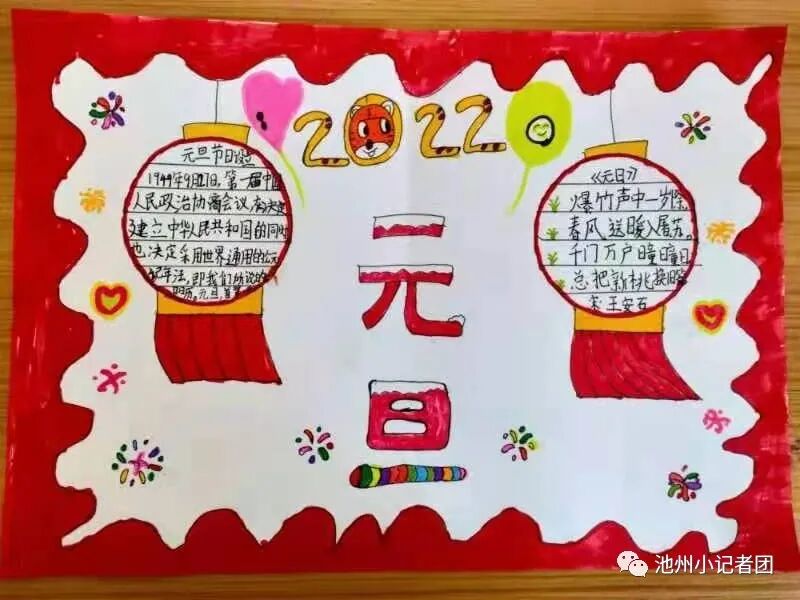 2022
元旦节日设
1949年9月27日,第一届中国
人民政治协商会议,在决定
建立中华人民共和国的同时
也决定采用世界通用的公元
纪年法,即我们所说的
阳历。元旦,
元旦
《元日》
爆竹声中一岁除
春风送暖入屠苏。
千门万户曈曈日
总把新桃换旧
宋·王安石
池州小记者团